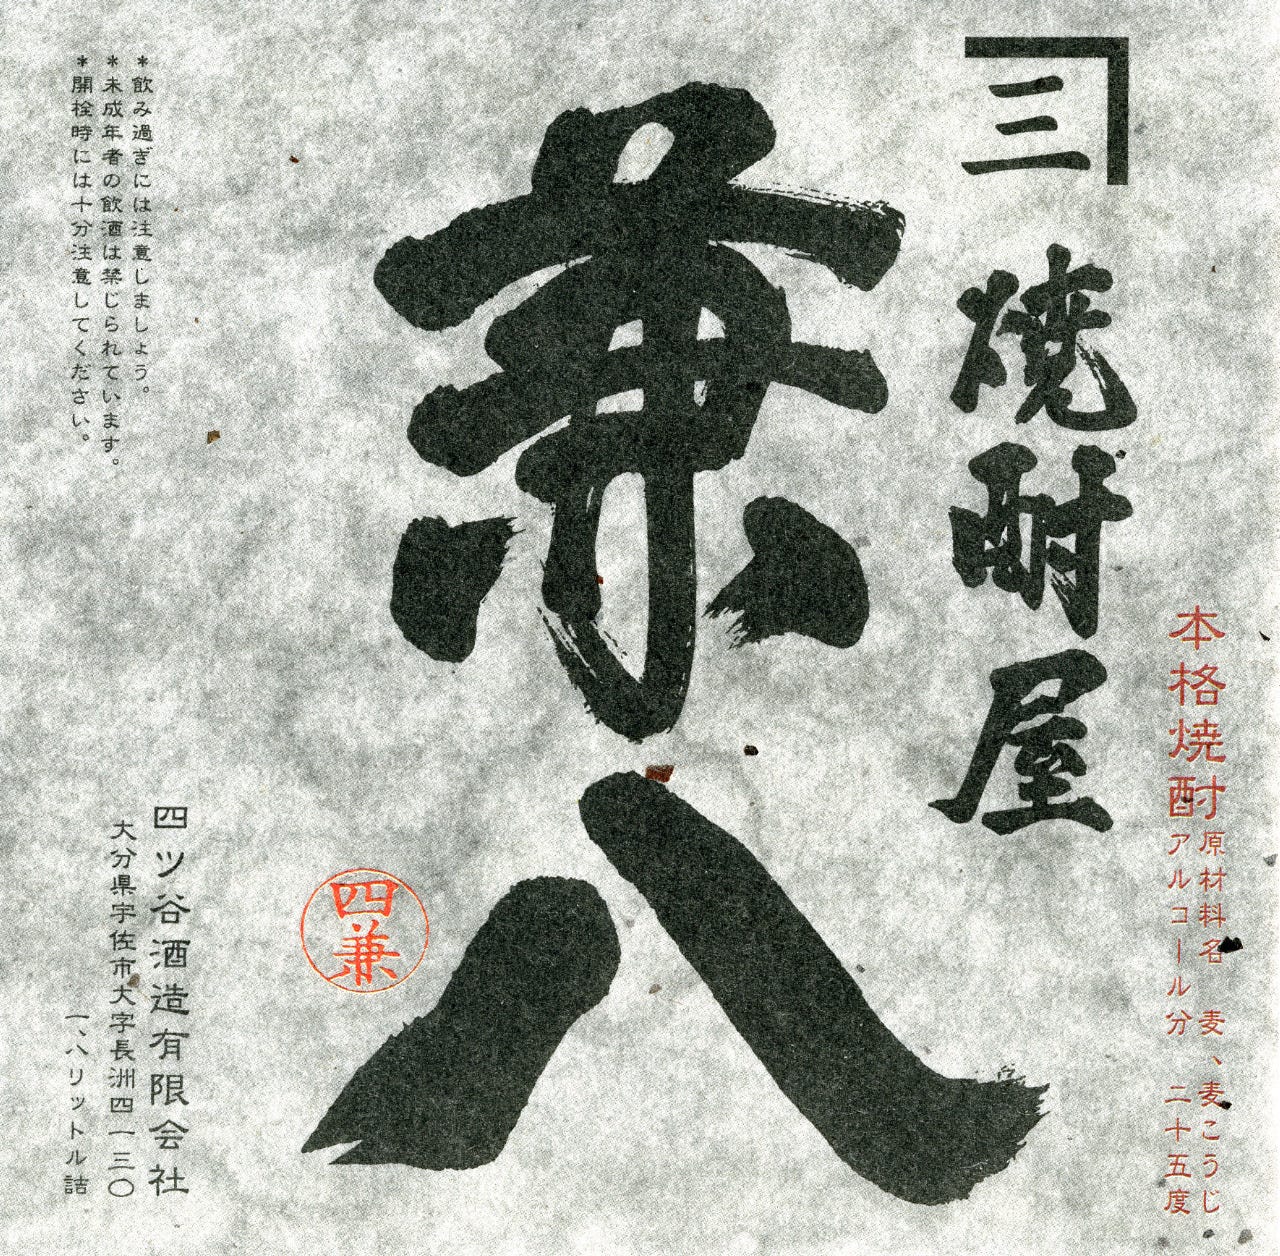 本格焼酎
原材料名 麦、麦こうじ
アルコール分 二十五度
三
焼酎屋
兼八
四兼
*飲み過ぎには注意しましょう。
*未成年者の飲酒は禁じられています。
*開栓時には十分注意してください。
四ツ谷酒造有限会社
大分県宇佐市大字長洲四一三〇
一、八リットル詰